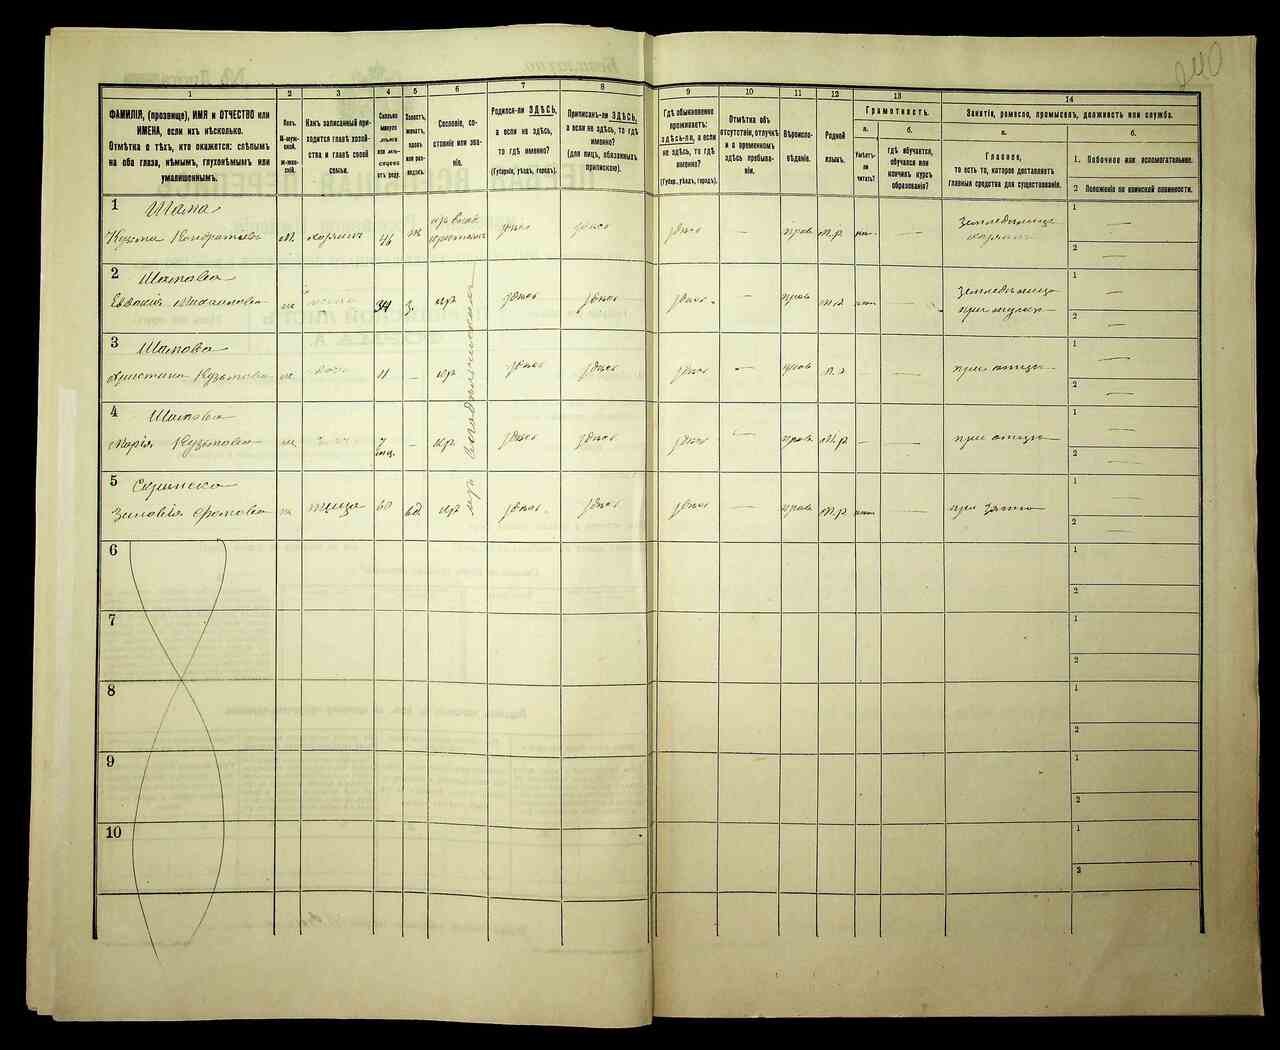 240
1
2
3
4
5
6
7
8
9
10
11
12
13
14
ФАМИЛІЯ, (прозвище), ИМЯ и ОТЧЕСТВО или
ИМЕНА, если ихъ нѣсколько.
Отмѣтка о тѣхъ, кто окажется: слѣпымъ
на оба глаза, нѣмымъ, глухонѣмымъ или
умалишеннымъ.
Полъ.
М-муж-
ской.
ж-жен-
скій.
Какъ записанный при-
ходится главѣ хозяй-
ства и главѣ своей
семьи.
Сколько
минуло
лѣтъ
или мѣ-
сяцевъ
отъ роду.
Холостъ,
женатъ,
вдовъ
или раз-
веденъ.
Сословіе, со-
стояніе или зва-
ніе.
Родился-ли ЗДѢСЬ,
а если не здѣсь,
то гдѣ именно?
(Губернія, уѣздъ, городъ).
Приписанъ-ли ЗДѢСЬ,
а если не здѣсь, то гдѣ
именно?
(для лицъ, обязанныхъ
припискою).
Гдѣ обыкновенно
проживаетъ:
здѣсь-ли, а если
не здѣсь, то гдѣ
именно?
(Губер., уѣздъ, городъ).
Отмѣтка объ
отсутствіи, отлучкѣ
и о временномъ
здѣсь пребыва-
ніи.
Вѣроиспо-
вѣданіе.
Родной
языкъ.
Грамотность.
а.
б.
Умѣетъ-
ли
читать?
Гдѣ обучается,
обучался или
кончилъ курсъ
образованія?
Занятіе, ремесло, промыселъ, должность или служба.
а.
б.
Главное,
то есть то, которое доставляетъ
главныя средства для существованія.
1. Побочное или вспомогательное.
2 Положеніе по воинской повинности.
1
Шапа
Кузьма Кондратьевъ
м.
хозяинъ
46
ж
здѣсь
здѣсь
здѣсь
—
прав
м.р.
—
Земледѣлецъ
хозяинъ
1 —
2 —
2
Шапова
Евдокія Михайловна
же
жена
34
з.
кр
здѣсь
здѣсь
здѣсь
—
прав
м.р.
—
при мужѣ
1 —
2 —
3
Шапова
Христина Кузьмовна
же
дочь
11
—
кр
здѣсь
здѣсь
здѣсь
—
прав
м.р
—
при отцѣ
1 —
2 —
4
Шапова
Марія Кузьмовна
же
дочь
7
—
кр
здѣсь
здѣсь
здѣсь
—
прав
м.р
—
—
при отцѣ
1 —
2 —
5
Зиновія
же
теща
60
вд
кр
здѣсь
здѣсь
здѣсь
—
прав
м.р
—
при зятѣ
1 —
2 —
6
1
2
7
1
2
8
1
2
9
1
2
10
1
2